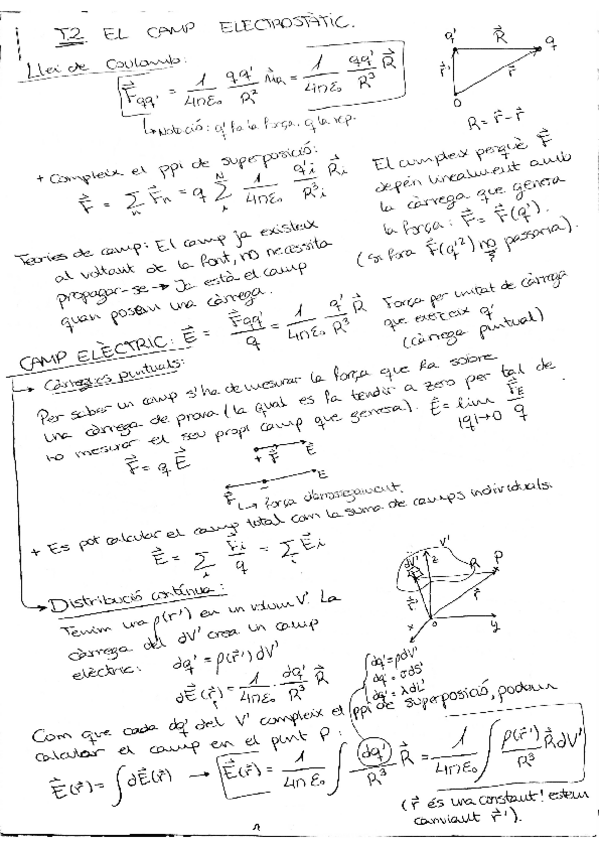 T.2 EL CAMP ELECTROSTÀTIC.
Llei de Coulomb:
F⃗qq' = 1/4πε₀ qq'/R² û_R = 1/4πε₀ qq'/R³ R⃗
q' R⃗ q
r⃗' r⃗
O
R = r⃗ - r⃗
↳ Notació: q' fa la força, q la rep.
+ Compleix el ppi de superposició:
F⃗ = Σ F⃗n = q Σ 1/4πε₀ q'i/R³i R⃗i
El compleix perquè F⃗
depèn linealment amb
la càrrega que genera
la força: F⃗ = F⃗(q').
(si fora F⃗(q'²) no passaria).
Teories de camp: El camp ja existeix
al voltant de la font, no necessita
propagar-se → Ja està el camp
quan posem una càrrega.
CAMP ELÈCTRIC: E⃗ = F⃗qq'/q = 1/4πε₀ q'/R³ R⃗
Força per unitat de càrrega
que exerceix q'
(càrrega puntual)
→ Càrregues puntuals:
Per saber un camp s'ha de mesurar la força que fa sobre
una càrrega de prova (la qual es fa tendir a zero per tal de
no mesurar el seu propi camp que genera). E⃗ = lim |q|→0 F⃗E/q
F⃗ = q E⃗
+ F⃗ E⃗
F⃗ - E
↳ Força d'arrossegament.
+ Es pot calcular el camp total com la suma de camps individuals:
E⃗ = Σ F⃗i/q = Σ E⃗i
→ Distribució contínua:
Tenim una ρ(r') en un volum V'. La
càrrega del dV' crea un camp
elèctric: dq' = ρ(r⃗') dV'
dE⃗(r⃗) = 1/4πε₀ · dq'/R³ R⃗
dV' V' z R P
r⃗' r⃗
x o y
dq' = ρdV'
dq' = σdS'
dq' = λdL'
Com que cada dq' del V' compleix el ppi de superposició, podem
calcular el camp en el punt P:
E⃗(r⃗) = ∫dE⃗(r⃗) → E⃗(r⃗) = 1/4πε₀ ∫ dq'/R³ R⃗ = 1/4πε₀ ∫ ρ(r⃗')/R³ R⃗dV'
(r⃗ és una constant! estem
canviant r⃗').